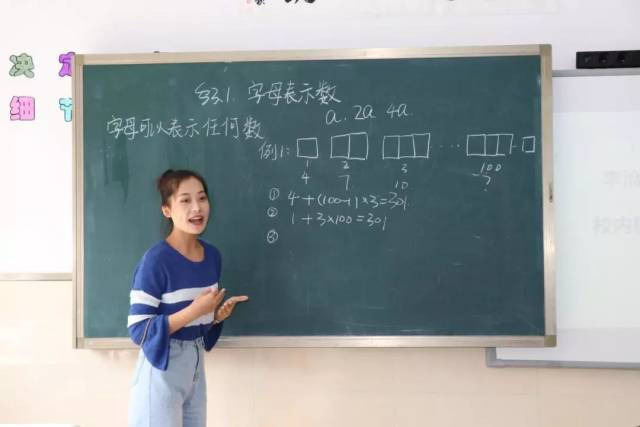 决定
细节
§3.1. 字母表示数
字母可以表示任何数
a. 2a. 4a.
例1:
1 2 3 ····· 100
4 7 10 ?
① 4+(100-1)×3=301
② 1+3×100=301
③
校内